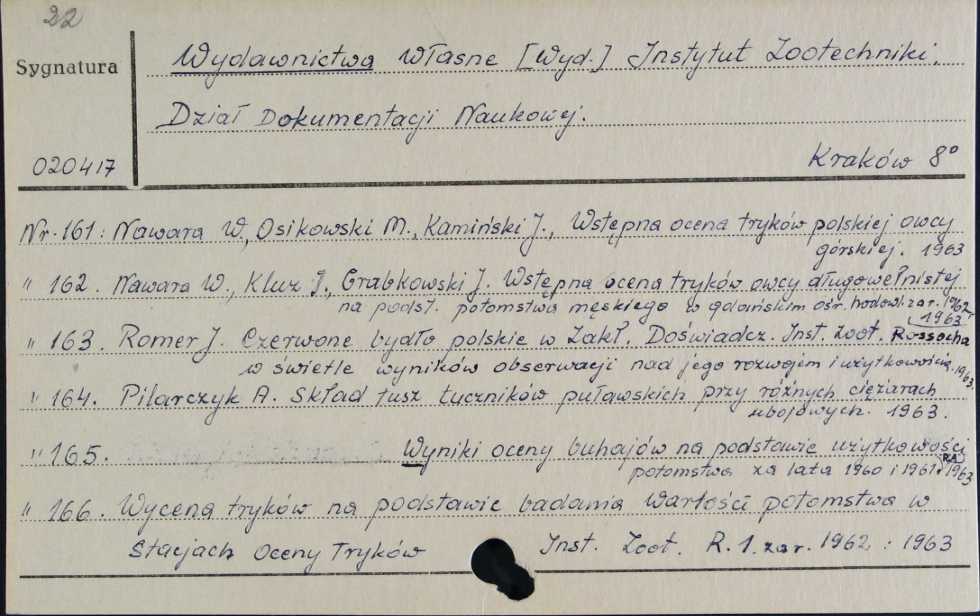 22
Sygnatura
Wydawnictwa Własne [Wyd.] Instytut Zootechniki.
Dział Dokumentacji Naukowej.
020417
Kraków 8°
Nr. 161: Nawara W., Osikowski M., Kamiński J., Wstępna ocena tryków polskiej owcy
górskiej. 1963
" 162. Nawara W., Kluz J., Grabkowski J. Wstępna ocena tryków owcy długowełnistej
na podst. potomstwa męskiego w gdańskim ośr. hodowl. za r. 1962,
1963
" 163. Romer J. Czerwone bydło polskie w Zakł. Doświadcz. Inst. Zoot. Rossocha
w świetle wyników obserwacji nad jego rozwojem i użytkowością. 1963.
" 164. Pilarczyk A. Skład tusz tuczników puławskich przy różnych ciężarach
ubojowych. 1963.
" 165. Wyniki oceny buhajów na podstawie użytkowości
potomstwa za lata 1960 i 1961. 1963
" 166. Wycena tryków na podstawie badania wartości potomstwa w
Stacjach Oceny Tryków Inst. Zoot. R. 1. za r. 1962 : 1963